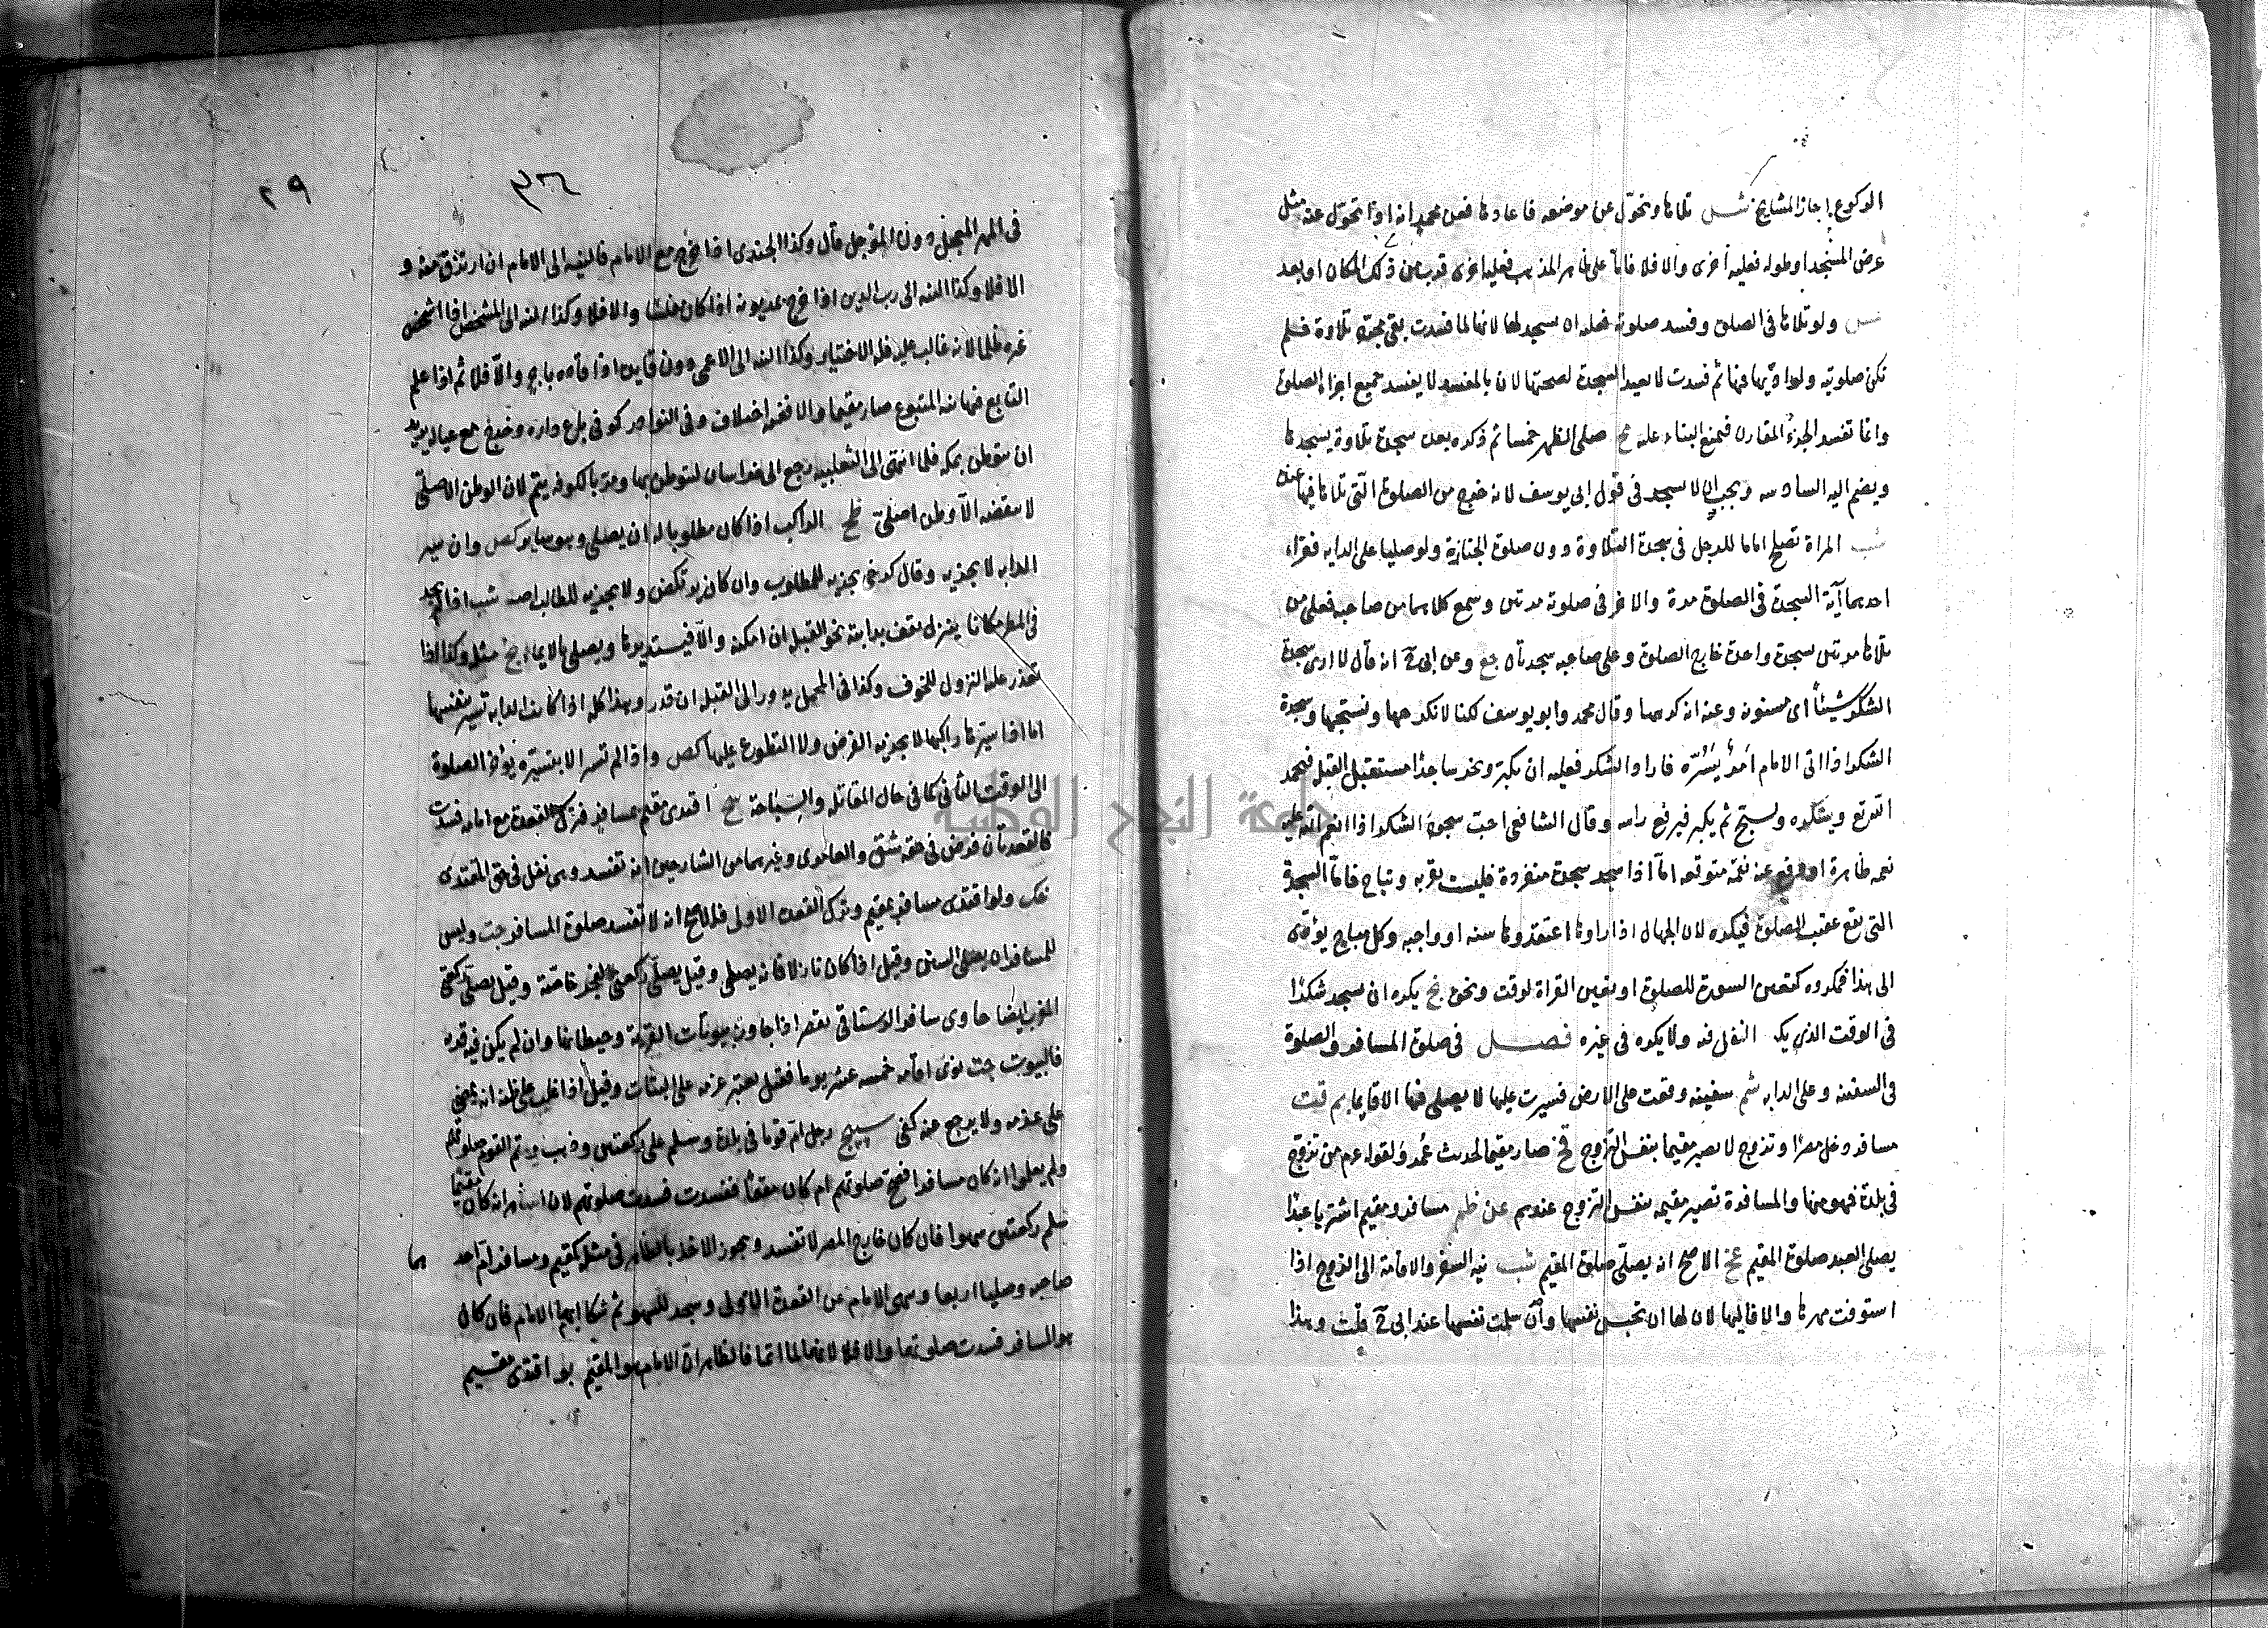 الركوع اجاز المشايخ تلاها وتحول عن موضعه فاعادها فعن محمد انه اذا تحول عنه مثل
عرض المسجد او طوله فعليه اخرى والا فلا فاما على ظاهر المذهب فعليه اخرى قرب من ذلك المكان او بعد
ولو تلاها في الصلوة وفسد صلوته فعليه ان يسجد لها لانها لما فسدت بقى مجرد تلاوة فلم
تكن صلوتيه ولو اديها فيها ثم فسدت لا يعيد السجدة لصحتها لان بالمفسد لا يفسد جميع اجزاء الصلوة
وانما تفسد الجزء المقارن فيمنع البناء عليه صلى الظهر خمسا ثم ذكره بعد سجدة تلاوة يسجدها
ويضم اليه السادسه ويجب ان لا يسجد في قول ابي يوسف لانه خرج من الصلوة التي تلاها فيها عنده
شب المراة تصلح اماما للرجل في سجدة التلاوة دون صلوة الجنازة ولو صليا على الدابه فقراء
احدهما آية السجدة في الصلوة مرة والاخر في صلوته مرتين وسمع كلاهما من صاحبه فعلى من
تلاها مرتين سجدة واحدة خارج الصلوة وعلى صاحبه سجدتان جع وعن ابي ح انه قال لا ارى سجدة
الشكر شيئا اى مسنونه وعنه انه كرهها وقال محمد وابو يوسف لكنا لا نكرهها ونستحبها وسجدة
الشكر اذا اتى الامام امر يسره فاراد الشكر فعليه ان يكبر ويخر ساجدا مستقبل القبله فيحمد
الله تع ويشكره ويسبح ثم يكبر فيرفع راسه وقال الشافعي احب سجود الشكر اذا انعم الله عليه
نعمه ظاهرة او دفع عنه نقمه متوقعه اما اذا سجد سجدة منفردة فليست بقربه وتباح فاما السجدة
التي يقع عقيب الصلوة فيكره لان الجهال اذا راوها اعتقدوها سنه او واجبه وكل مباح يؤدى
الى هذا فمكروه كتعيين السورة للصلوة او تعيين القراة لوقت ونحوه يكره ان يسجد شكرا
في الوقت الذي يكره النفل فيه ولا يكره في غيره فصل في صلوة المسافر والصلوة
في السفينه وعلى الدابه شم سفينه وقعت على الارض فسيرت عليها لا يصلى فيها الا قايما بم قيت
مسافر دخل مصرا وتزوج لا يصير مقيما بنفس التزوج قخ صار مقيما لحديث عمر ولقوله عم من تزوج
في بلدة فهو منها والمسافرة تصير مقيمه بنفس التزوج عندهم عن ظم مسافر ومقيم اشتريا عبدا
يصلى العبد صلوة المقيم الاصح انه يصلى صلوة المقيم شب نيه السفر والاقامة الى الزوج اذا
استوفت مهرها والا فاليها لان لها ان تحبس نفسها وان سلمت نفسها عند ابي ح قلت وهذا
٢٩
في المهر المعجل دون المؤجل قال وكذا الجندي اذا خرج مع الامام فالنيه الى الامام ان ارتزق منه و
الا فلا وكذا النيه الى رب الدين اذا خرج بمديونه اذا كان مفلسا والا فلا وكذا النيه الى المشخص اذا اشخص
غيره ظلما لانه غالب عليه فله الاختيار وكذا النيه الى الاعمى دون قايده اذا قاده باجر والا فلا ثم اذا علم
التابع فيما نيه المتبوع صار مقيما والا ففيه اختلاف وفي النوادر كوفي باع داره وخرج مع عياله يريد
ان يتوطن بمكه فلما انتهى الى الثعلبيه رجع الى خراسان ليتوطن بها ومر بالكوفه يتم لان الوطن الاصلي
لا ينقضه الا وطن اصلي ظح الراكب اذا كان مطلوبا له ان يصلى وهو سايركص وان سير
الدابه لا يجزيه وقال كرخي يجزيه للمطلوب وان كان يرتكض ولا يجزيه للطالب اصـ شب اذا لم يجد
في المطر مكانا ينزل يقف بدابته نحو القبله ان امكنه والا فيستدبرها ويصلى بالايماء مثله وكذا اذا
تعذر عليه النزول للخوف وكذا في المحمل يدور الى القبله ان قدر وهذا كله اذا كانت الدابه تسير بنفسها
اما اذا سيرها راكبها لا يجزيه الفرض ولا التطوع عليها كص واذا لم تسر الا بتسييره يؤخر الصلوة
الى الوقت الثاني كما في حال المقاتله والسباحة اقتدى مقيم بمسافر فترك القعدة مع امامه فسدت
فالقعدتان فرض في حقه شق والحاوى وغيرهما من الشارحين انه تفسد وهي نفل في حق المقتدى
عك ولو اقتدى مسافر بمقيم وترك القعدة الاولى فالاصح انه لا تفسد صلوة المسافر جت وليس
للمسافر ان يصلى السنن وقيل اذا كان نازلا فانه يصلى وقيل يصلى ركعتي الفجر خاصة وقيل يصلى ركعتي
المغرب ايضا حاوى سافر الرستاقي يقصر اذا جاوز بيوتات القرية وحيطانها وان لم يكن فيه قدر
فالبيوت جت نوى اقامه خمسه عشر يوما فقيل يعتبر عزمه على الثبات وقيل اذا غلب على ظنه انه يمضى
على عزمه ولا يرجع عنه كفى سيح رجل ام قوما في بلدة وسلم على ركعتين وذهب وتم القوم صلوتهم
ولم يعلموا انه كان مسافرا فصح صلوتهم ام كان مقيما ففسدت فسدت صلوتهم لان الظاهر انه كان مقيما
سلم ركعتين سهوا فان كان خارج المصر لا تفسد ويجوز الاخذ بالظاهر في مثله كمقيم ومسافر ام احدهما
صاحبه وصليا اربعا وسهى الامام عن القعدة الاولى وسجد للسهو ثم شكا ايهما الامام فان كان
هو المسافر فسدت صلوتهما والا فلا لانهما لما اتما فالظاهر ان الامام هو المقيم بو اقتدى مقيم